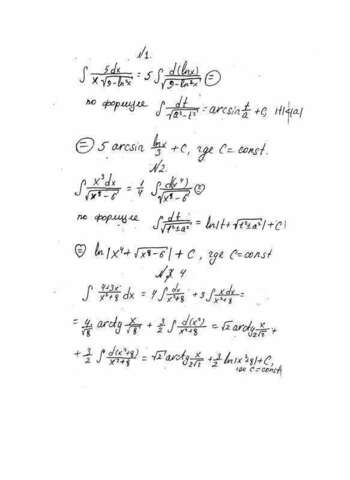 №1.
∫ 5dx / x√(9-ln²x) = 5 ∫ d(lnx) / √(9-ln²x) =
по формуле ∫ dt / √(a²-t²) = arcsin t/a + C, |t|<|a|
= 5 arcsin lnx/3 + C, где C=const.
№2.
∫ x³dx / √(x⁸-6) = 1/4 ∫ d(x⁴) / √(x⁸-6) =
по формуле ∫ dt / √(t²±a²) = ln|t+√(t²±a²)|+C
= ln|x⁴+√(x⁸-6)|+C, где C=const
№ 4
∫ (4+3x)/(x²+8) dx = 4∫ dx/(x²+8) + 3∫ xdx/(x²+8) =
= 4/√8 arctg x/√8 + 3/2 ∫ d(x²)/(x²+8) = √2 arctg x/2√2 +
+ 3/2 ∫ d(x²+8)/(x²+8) = √2 arctg x/2√2 + 3/2 ln|x²+8|+C,
где C=const